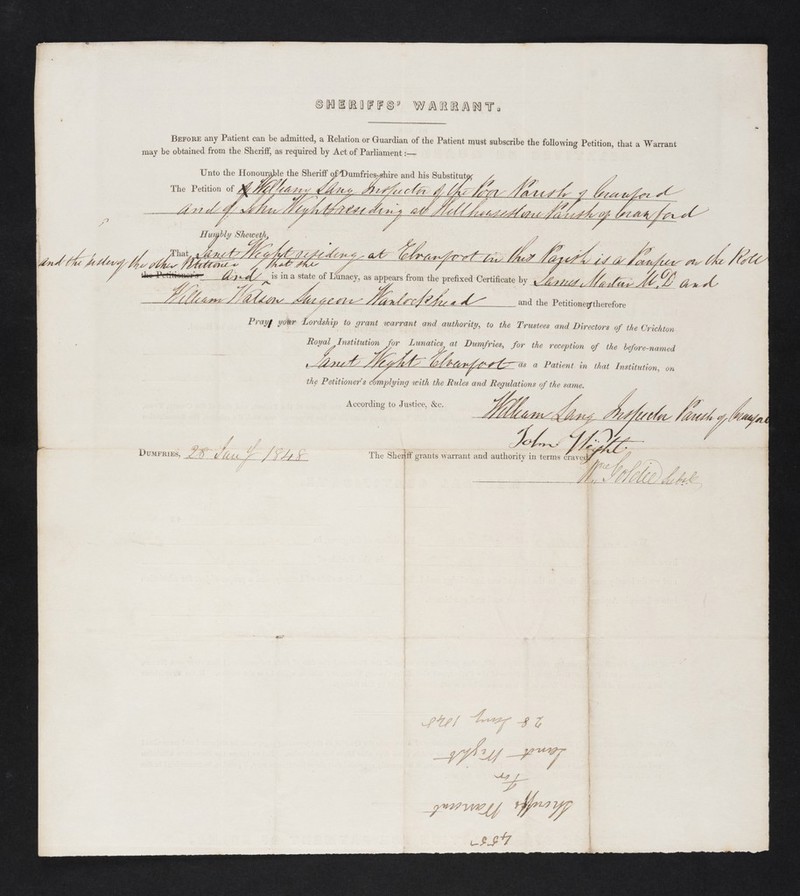 SHERIFFS' WARRANT.
BEFORE any Patient can be admitted, a Relation or Guardian of the Patient must subscribe the following Petition, that a Warrant
may be obtained from the Sheriff, as required by Act of Parliament :—
Unto the Honourable the Sheriff of Dumfries-shire and his Substitute,
The Petition of William Lang Inspector of the Poor Parish of Crawford
and of John Wight residing at Parish of Crawford
Humbly Sheweth,
That Janet Wight residing at Elvanfoot in this Parish is a Pauper on the Roll
and the sister of the other Petitioner that she
the Petitioner's and is in a state of Lunacy, as appears from the prefixed Certificate by James Martin M.D and
William Watson Surgeon Wanlockhead and the Petitioners therefore
Pray your Lordship to grant warrant and authority, to the Trustees and Directors of the Crichton
Royal Institution for Lunatics, at Dumfries, for the reception of the before-named
Janet Wight Elvanfoot as a Patient in that Institution, on
the Petitioner's complying with the Rules and Regulations of the same.
According to Justice, &c.
William Lang Inspector Parish of Crawford
John Wight.
DUMFRIES, 28 Jany 1848 The Sheriff grants warrant and authority in terms craved
Wm Goldie
455
Sheriffs Warrant
For
Janet Wight
28 Jany 1848